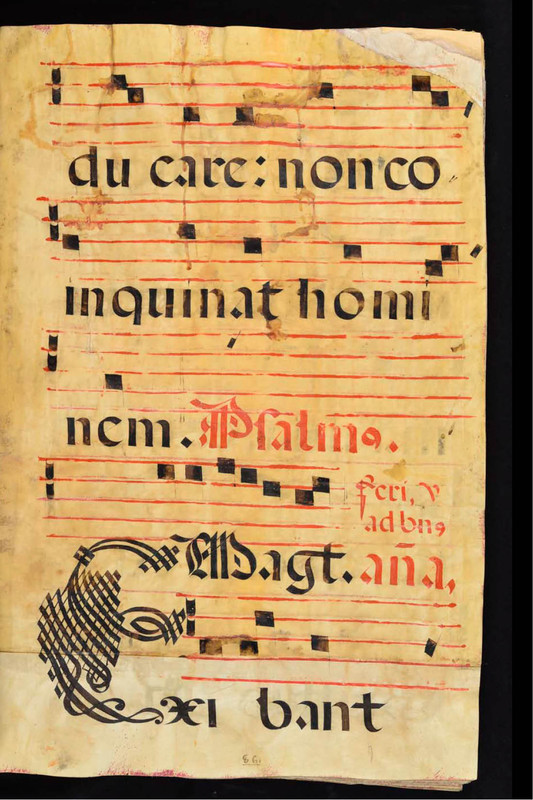 du care: non co
inquinat homi
nem. Psalmꝯ.
feri, v
ad bnꝯ
Magt. aña,
Exi bant